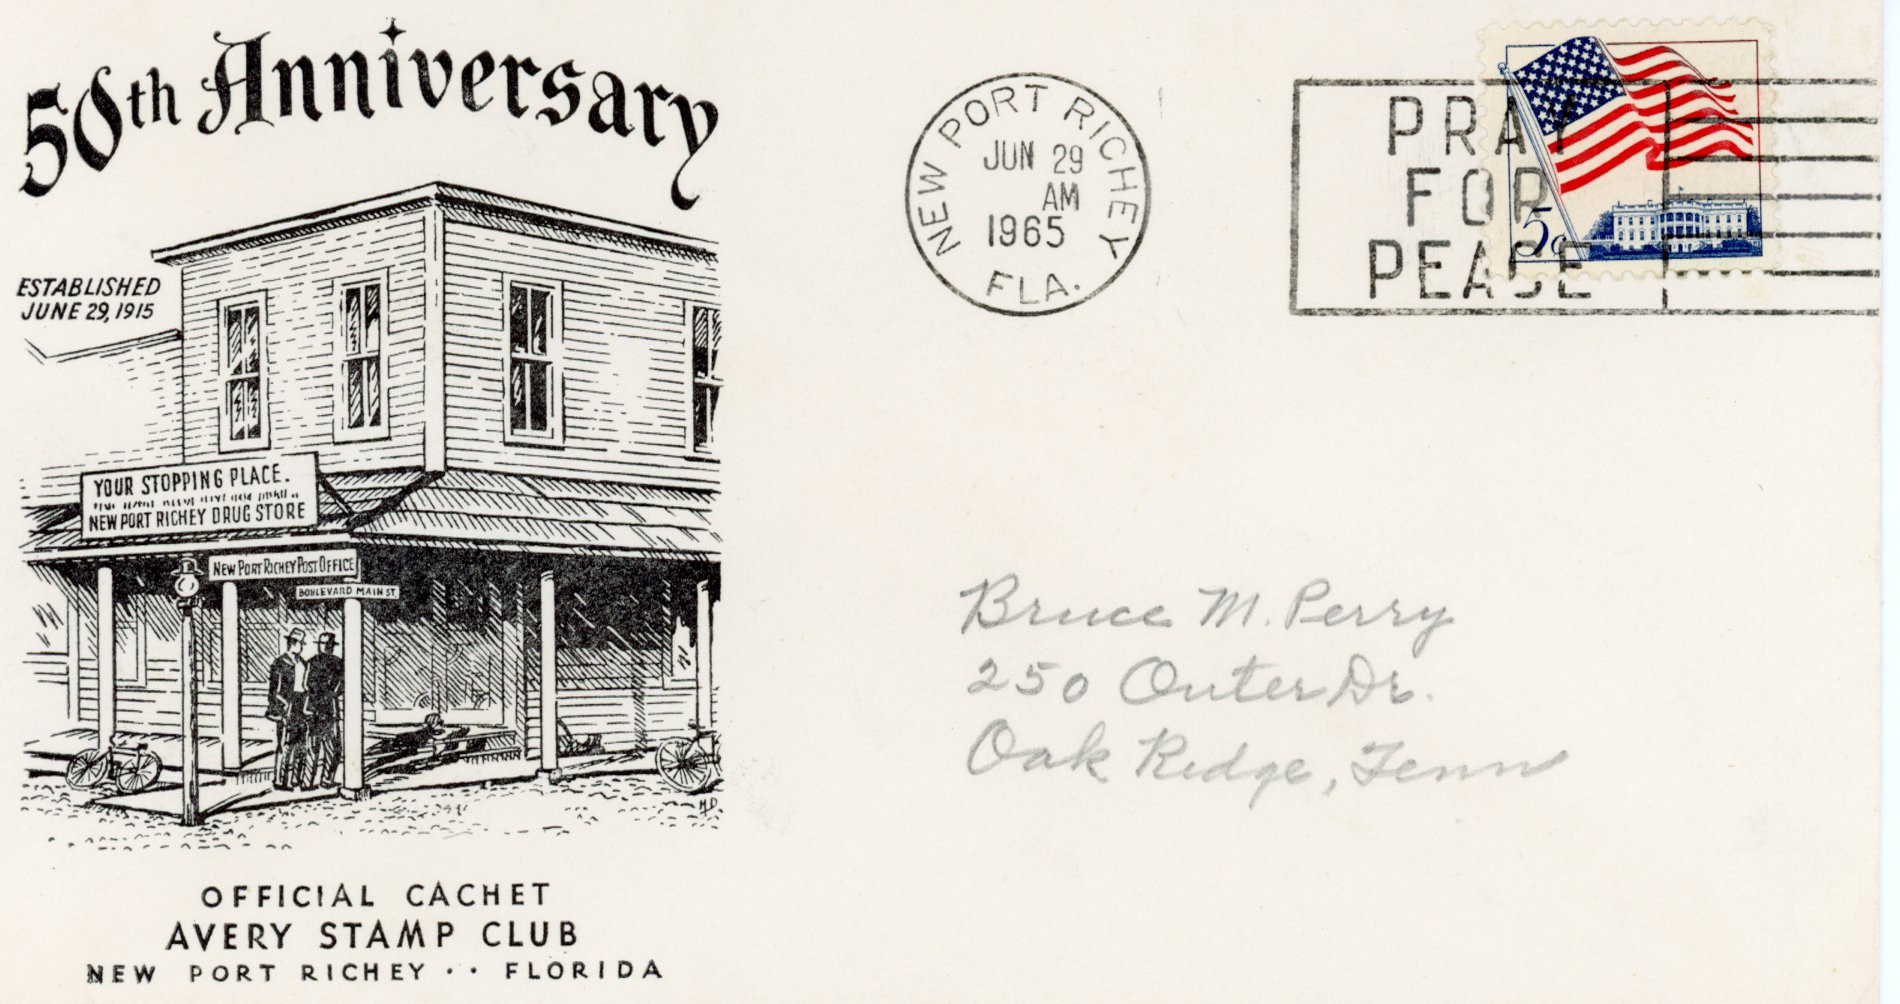 50th Anniversary
ESTABLISHED
JUNE 29, 1915
YOUR STOPPING PLACE.
NEW PORT RICHEY DRUG STORE
NEW PORT RICHEY POST OFFICE
BOULEVARD MAIN ST.
H.D.
OFFICIAL CACHET
AVERY STAMP CLUB
NEW PORT RICHEY · · FLORIDA
NEW PORT RICHEY
JUN 29
AM
1965
FLA.
PRAY
FOR
PEACE
5c
Bruce M. Perry
250 Outer Dr.
Oak Ridge, Tenn